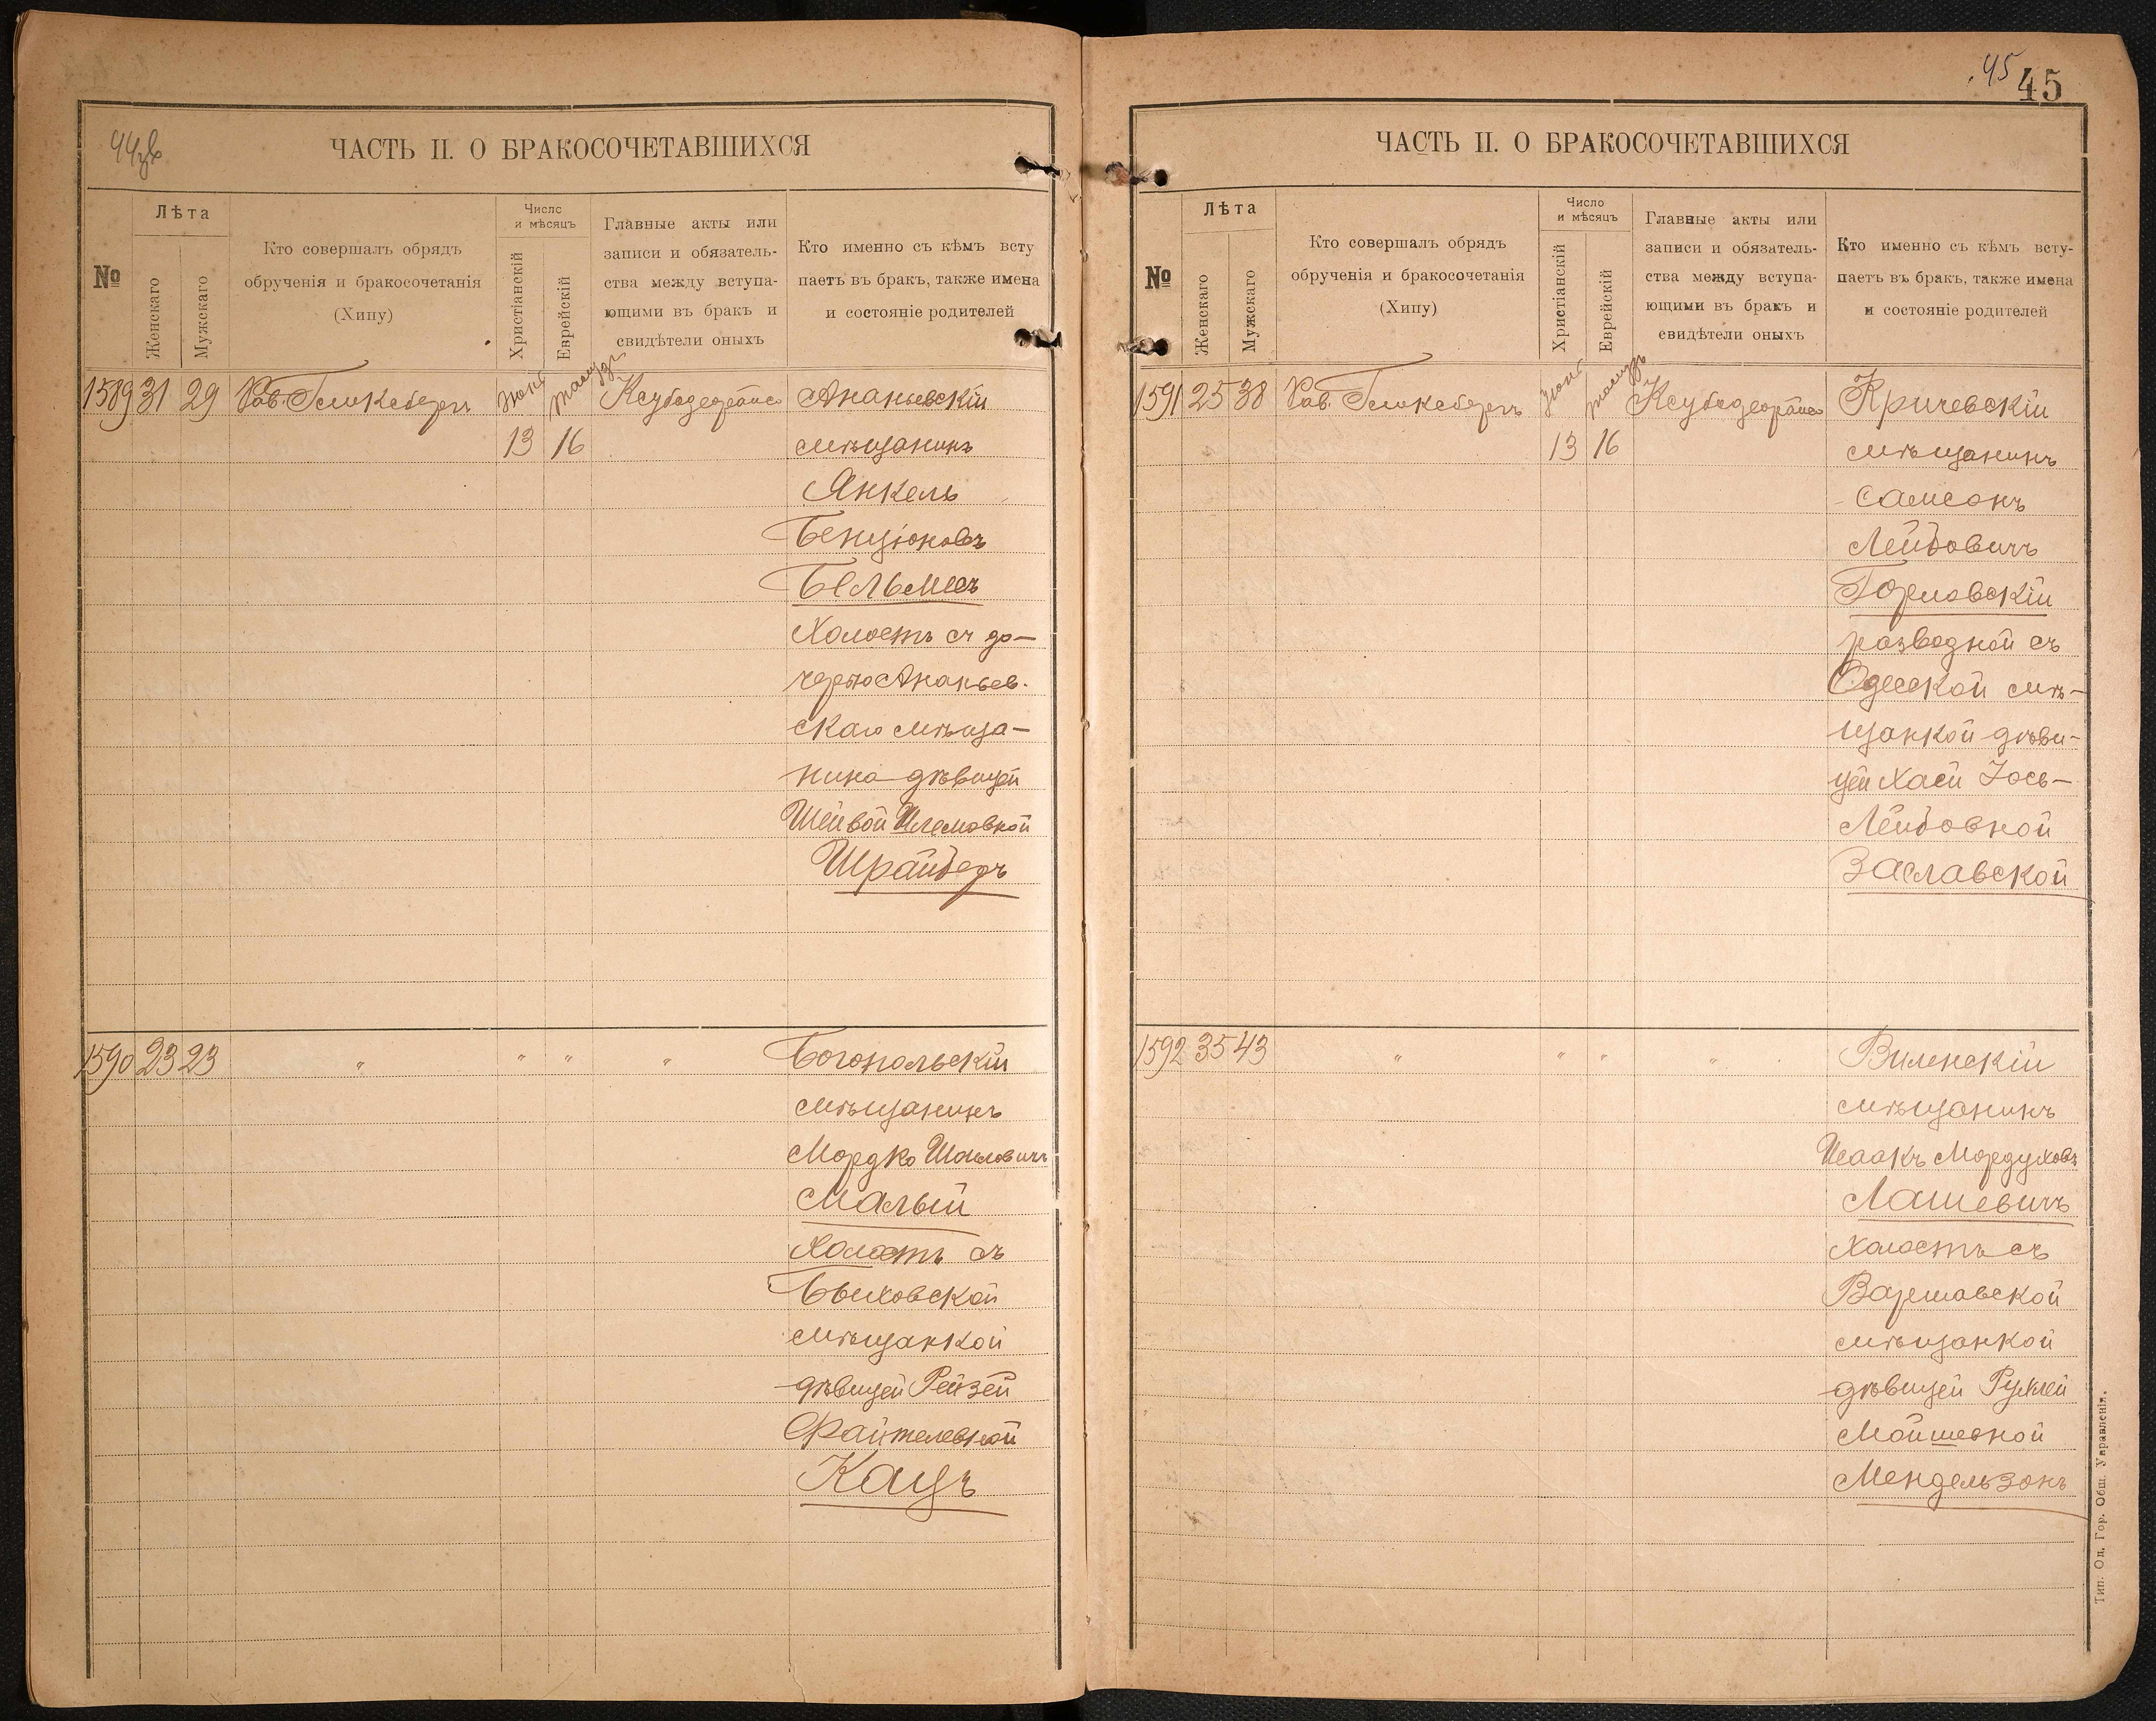 44 зв
ЧАСТЬ II. О БРАКОСОЧЕТАВШИХСЯ
№
Лѣта
Женскаго
Мужскаго
Кто совершалъ обрядъ
обрученія и бракосочетанія
(Хипу)
Число
и мѣсяцъ
Христіанскій
Еврейскій
Главные акты или
записи и обязатель-
ства между вступа-
ющими въ бракъ и
свидѣтели оныхъ
Кто именно съ кѣмъ всту
паетъ въ брак, также имена
и состояніе родителей
1589 31 29 Рав. Гликсбергъ
13 16
Ананьевскій
мѣщанинъ
Янкель
Бенціоновъ
Бельмесъ
Холостъ съ до-
черью Ананьев-
скаго мѣща-
нина дѣвицей
Шейвой
Шрайберъ
1590 23 23 " " " "
Богопольскій
мѣщанинъ
Мордко Шмловичъ
Малый
Холостъ съ
Быховской
мѣщанкой
дѣвицей Рейзей
Файтелевной
Кацъ
45 45
ЧАСТЬ II. О БРАКОСОЧЕТАВШИХСЯ
№
Лѣта
Женскаго
Мужскаго
Кто совершалъ обрядъ
обрученія и бракосочетанія
(Хипу)
Число
и мѣсяцъ
Христіанскій
Еврейскій
Главные акты или
записи и обязатель-
ства между вступа-
ющими въ бракъ и
свидѣтели оныхъ
Кто именно съ кѣмъ всту-
паетъ въ брак, также имена
и состояніе родителей
1591 25 38 Рав. Гликсбергъ
13 16
Кричевскій
мѣщанинъ
Самсонъ
Лейбовичъ
Горловскій
разводной съ
Одесской мѣ-
щанкой дѣви-
цей Хаей Іось-
Лейбовной
Заславской
1592 35 43 " " " "
Виленскій
мѣщанинъ
Исаакъ Мордуховъ
Лашевичъ
Холостъ съ
Варшавской
мѣщанкой
дѣвицей Рухлей
Мойшевной
Мендельзонъ
Тип. Од. Гор. Общ. Управленія.